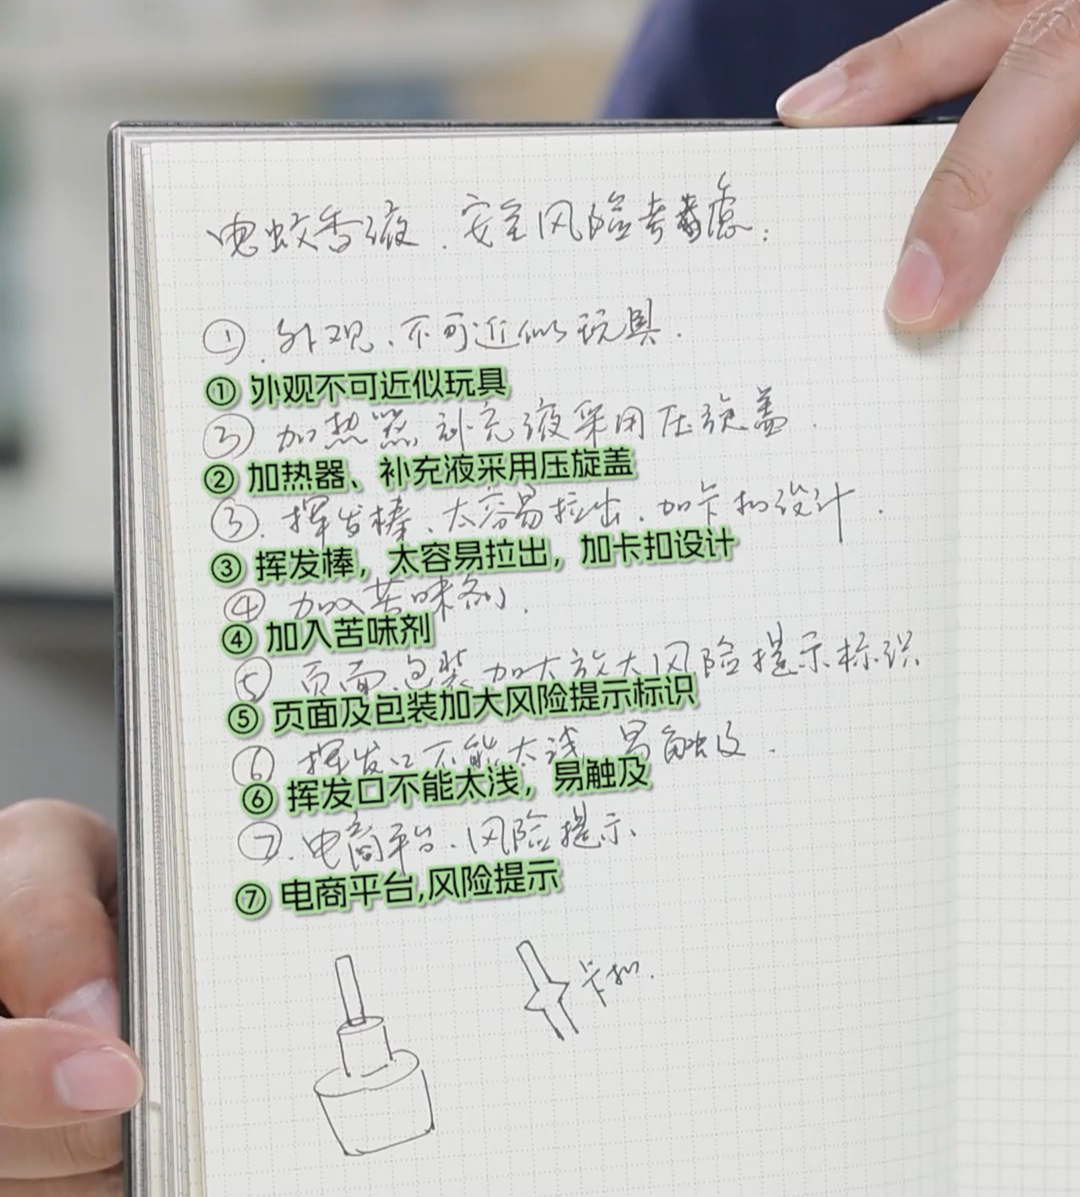 电蚊香液.安全风险考虑：
①.外观、不可近似玩具.
① 外观不可近似玩具
②加热器,补充液采用压旋盖.
② 加热器、补充液采用压旋盖
③.挥发棒、太容易拉出、加卡扣设计.
③ 挥发棒，太容易拉出，加卡扣设计
④加入苦味剂.
④ 加入苦味剂
⑤页面、包装加大放大风险提示标识
⑤ 页面及包装加大风险提示标识
⑥挥发口不能太浅、易触及.
⑥ 挥发口不能太浅，易触及
⑦.电商平台、风险提示.
⑦ 电商平台,风险提示
卡扣.